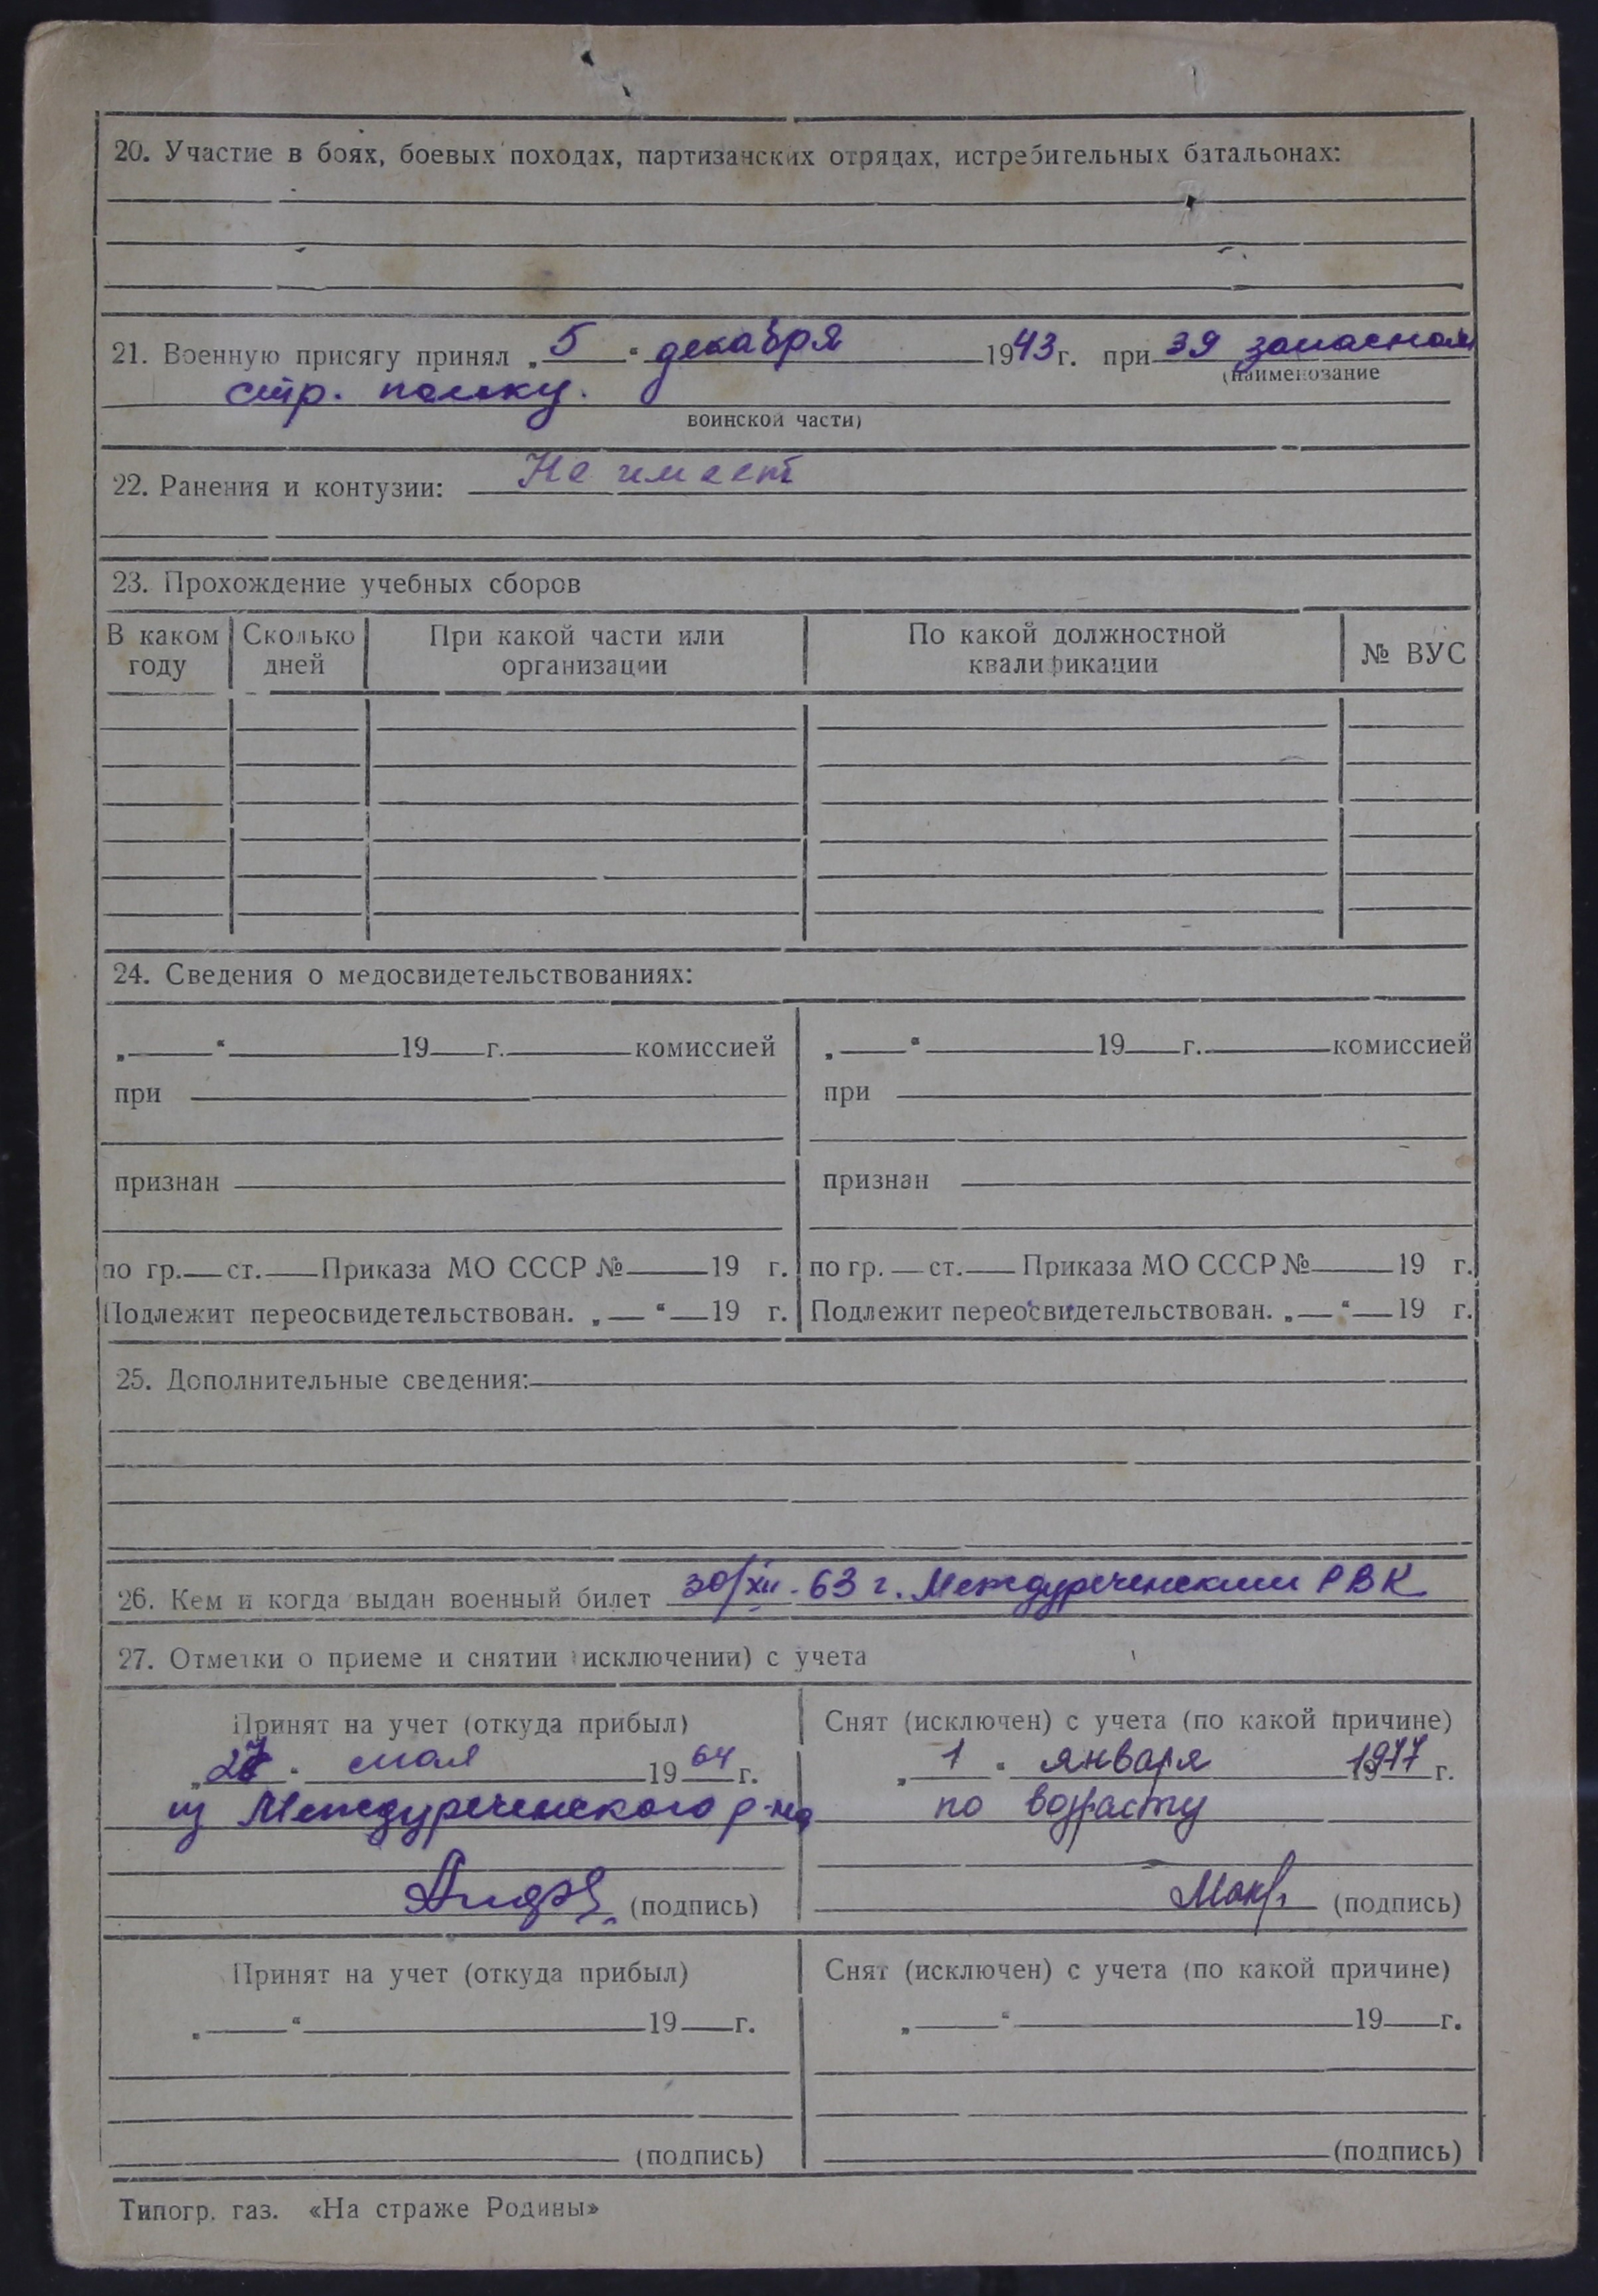 20. Участие в боях, боевых походах, партизанских отрядах, истребительных батальонах:
21. Военную присягу принял „5“ декабря 1943 г. при 39 запасном
(наименование
стр. полку.
воинской части)
22. Ранения и контузии: Не имеет
23. Прохождение учебных сборов
В каком году | Сколько дней | При какой части или организации | По какой должностной квалификации | № ВУС
24. Сведения о медосвидетельствованиях:
„ “ 19 г. комиссией | „ “ 19 г. комиссией
при | при
признан | признан
по гр. ст. Приказа МО СССР № 19 г. | по гр. ст. Приказа МО СССР № 19 г.
Подлежит переосвидетельствован. „ “ 19 г. | Подлежит переосвидетельствован. „ “ 19 г.
25. Дополнительные сведения:
26. Кем и когда выдан военный билет 30/XII-63 г. Междуреченским РВК
27. Отметки о приеме и снятии (исключении) с учета
Принят на учет (откуда прибыл) | Снят (исключен) с учета (по какой причине)
мая 1964 г. | „1“ января 1977 г.
из Междуреченского р-на | по возрасту
(подпись) | (подпись)
Принят на учет (откуда прибыл) | Снят (исключен) с учета (по какой причине)
„ “ 19 г. | „ “ 19 г.
(подпись) | (подпись)
Типогр. газ. «На страже Родины»